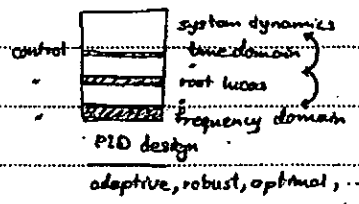 system dynamics
control time domain
" "
" root lucas
" "
" frequency domain
PID design
adaptive, robust, optimal, ..